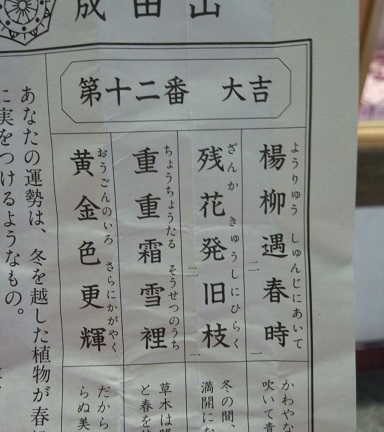 成田山
第十二番 大吉
楊柳遇春時
ようりゆう しゅんじにあいて
二 一
残花発旧枝
ざんか きゅうしにひらく
二 一
重重霜雪裡
ちょうちょうたる そうせつのうち
黄金色更輝
おうごんのいろ さらにかがやく
かわやな
吹いて青
冬の間、
満開にな
草木は
と春を
だから
らぬ美
あなたの運勢は、冬を越した植物が春に
に実をつけるようなもの。